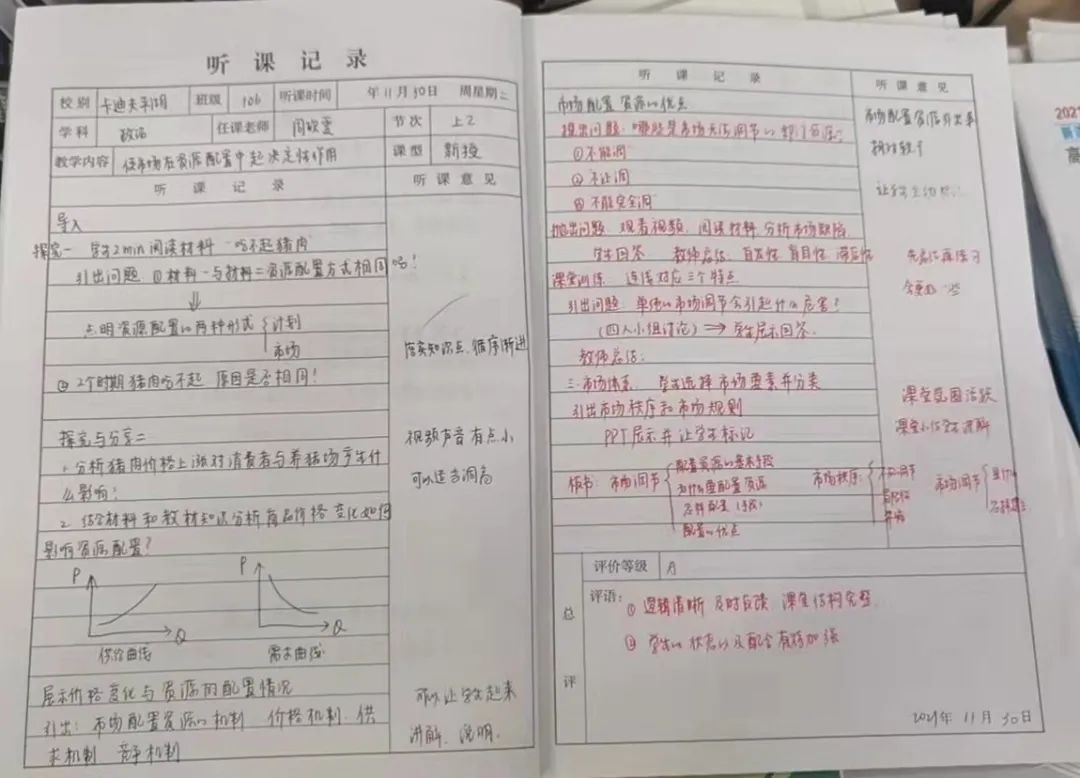 听课记录
校别 卡迪夫平湖 班级 106 听课时间 年11月30日 周星期二
学科 政治 任课老师 周 节次 上2
教学内容 使市场在资源配置中起决定性作用 课型 新授
听课记录 听课意见
导入
探究一 学生2min阅读材料 吃不起猪肉
引出问题 ①材料一与材料二资源配置方式相同吗!
⇓
点明资源配置的两种形式 计划
市场
落实知识点、循序渐进
②2个时期猪肉吃不起 原因是否相同!
探究与分享二 视频声音有点小
1.分析猪肉价格上涨对消费者与养猪场产生什
么影响? 可以适当调高
2.结合材料和教材知识分析商品价格变化如何
影响资源配置?
P Q P Q
供给曲线 需求曲线
展示价格变化与资源的配置情况 可以让学生起来
引出:市场配置资源的机制 价格机制、供 讲解、说明.
求机制 竞争机制
听课记录 听课意见
市场配置资源的优点 市场配置资源
提出问题:哪些是市场无法调节的
①不能调
②不让调 让学生
③不能完全调
抛出问题 观看视频、阅读材料 分析市场缺陷
学生回答 教师总结:自发性 盲目性 滞后性 先总结再练习
课堂训练 连线对应三个特点 会更好一些
引出问题 单纯的市场调节会引起什么危害?
(四人小组讨论)⇒ 学生展示回答.
教师总结:
三.市场体系 学生选择市场要素并分类 课堂氛围活跃
引出市场秩序和市场规则
PPT展示并让学生标记
板书:市场调节 配置资源的基本手段 市场秩序: 市场调节
为什么要配置资源
怎样配置(手段)
配置的优点
总评
评价等级 A
评语:① 逻辑清晰 及时反馈 课堂结构完整.
② 学生的状态以及配合有待加强
2021年11月30日
202
高